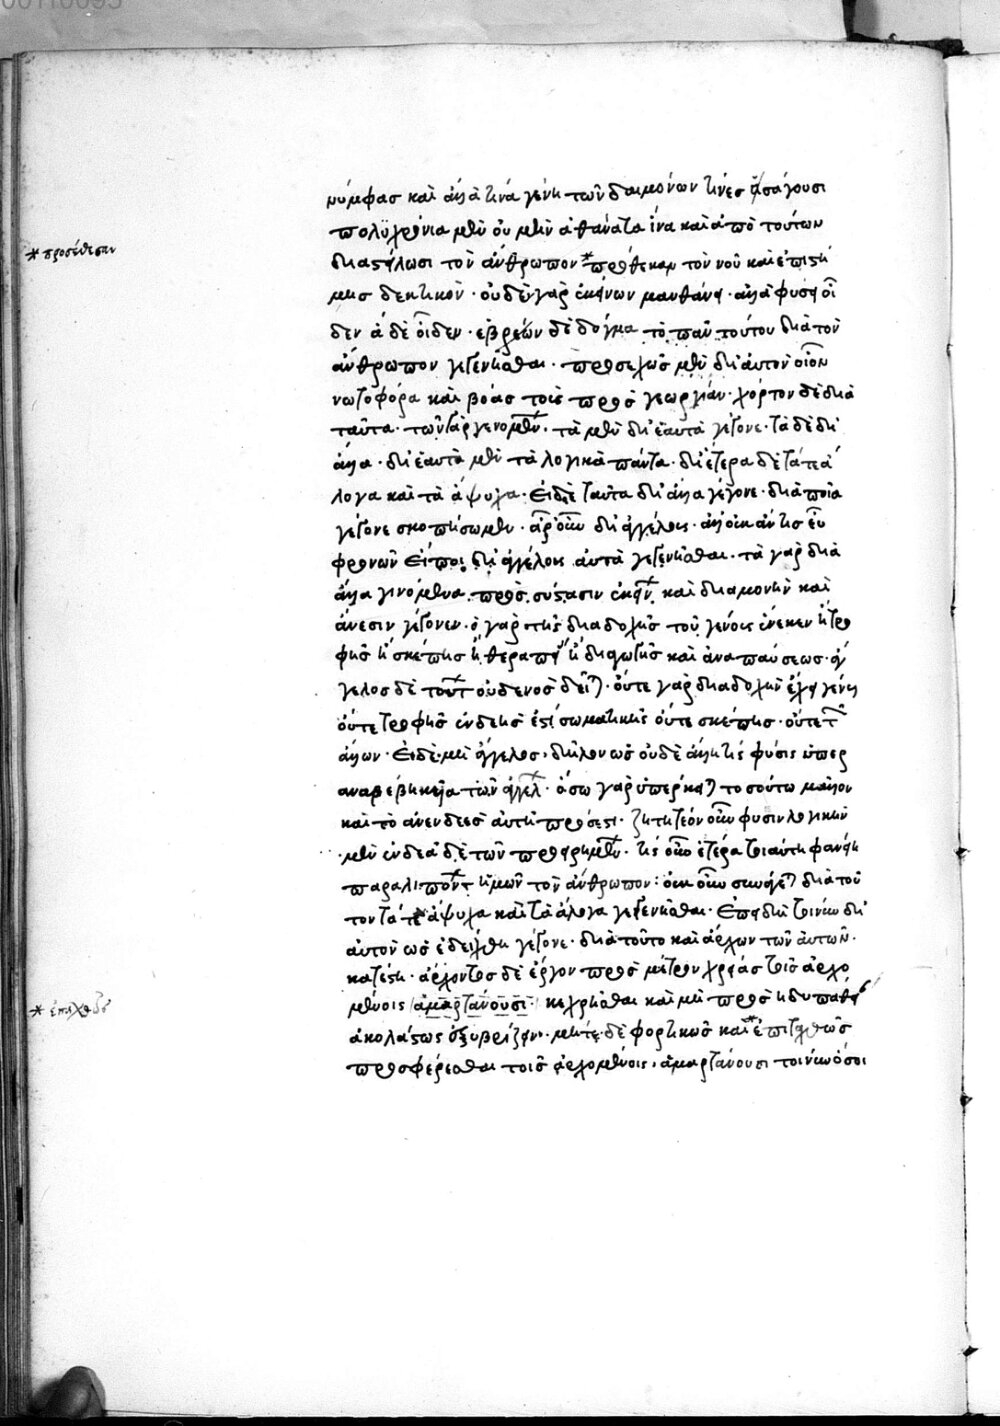 νύμφας καὶ ἄλλα τινὰ γένη τῶν δαιμόνων τινὲς εἰσάγουσι
πολυχρόνια μὲν οὐ μὴν ἀθάνατα ἵνα καὶ ἀπὸ τούτων
διαστήλωσι τὸν ἄνθρωπον * προέθεκαν τὸν νοῦ καὶ ἐπιστή
* προσέθεσαν
μης δεκτικόν · οὐδὲν γὰρ ἐκείνων μανθάνει · ἀλλὰ φύσει οἶ
δεν ἃ δὲ οἶδεν · ἑβραίων δὲ δόγμα τὸ πᾶν τούτου διὰ τὸν
ἄνθρωπον γεγενῆσθαι · προσεχῶς μὲν δι' αὐτὸν οἷον
νωτοφόρα καὶ βόας τοὺς πρὸς γεωργίαν · χόρτον δὲ διὰ
ταῦτα · τῶν γὰρ γενομέν · τὰ μὲν δι' ἑαυτὰ γέγονε · τὰ δὲ δι'
ἄλλα · δι' ἑαυτὰ μὲν τὰ λογικὰ πάντα · δι' ἕτερα δὲ τά τε ἄ
λογα καὶ τὰ ἄψυχα · εἰ δὲ ταῦτα δι' ἄλλα γέγονε · διὰ ποῖα
γέγονε σκοπήσωμεν · ἆρ' οὖν δι' ἀγγέλους · ἀλλ' οὐκ ἄν τις εὖ
φρονῶν εἴποι δι' ἀγγέλους αὐτὰ γεγενῆσθαι · τὰ γὰρ διὰ
ἄλλα γινόμενα πρὸς σύστασιν ἐκείν καὶ διαμονὴν καὶ
ἄνεσιν γέγονεν · ὁ γὰρ τῆς διαδοχῆς τοῦ γένους ἕνεκεν ἢ τρο
φῆς ἢ σκέπης ἢ θεραπεί ἢ διαγωγῆς καὶ ἀναπαύσεως · ἄγ
γελος δὲ τούτ οὐδενὸς δεῖται · οὔτε γὰρ διαδοχὴν ἔχει γένους
οὔτε τροφῆς ἐνδεής ἐστι σωματικῆς οὔτε σκέπης · οὔτε τ
ἄλλων · εἰ δὲ μὴ ἄγγελος · δῆλον ὡς οὐδὲ ἄλλη τις φύσις ὑπερ
αναβεβηκυῖα τῶν ἀγγέλ · ὅσῳ γὰρ ὑπέρκειται τοσούτῳ μᾶλλον
καὶ τὸ ἀνενδεὲς αὐτῇ πρόσεστι · ζητητέον οὖν φύσιν λογικὴν
μὲν ἐνδεᾶ δὲ τῶν προειρημέν · τίς οὖν ἑτέρα τοιαύτη φανείη
παραλιπόντ ἡμῶν τὸν ἄνθρωπον : οὐκ οὖν συνάγεται διὰ τοῦ
τον τά τε ἄψυχα καὶ τὰ ἄλογα γεγενῆσθαι · ἐπειδὴ τοίνυν δι'
αὐτὸν ὡς ἐδείχθη γέγονε · διὰ τοῦτο καὶ ἄρχων τῶν αὐτῶν ·
κατέστη · ἄρχοντος δὲ ἔργον πρὸς μέτρον χρείας τοῖς ἀρχο
μένοις ἁμαρτάνουσι κεχρῆσθαι καὶ μὴ πρὸς ἡδυπάθει
ἀκολάστως ἐξυβρίζειν · μήτε δὲ φορτικῶς καὶ * ἐπιτχθῶς
* ἐπαχθῶς
προσφέρεσθαι τοῖς ἀρχομένοις · ἁμαρτάνουσι τοίνυν ὅσοι